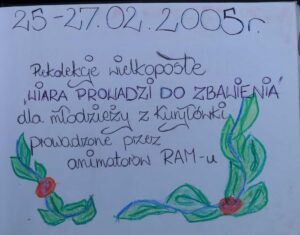 25-27.02.2005r.
Rekolekcje wielkopostne
„WIARA PROWADZI DO ZBAWIENIA"
dla młodzieży z Kuryłówki
prowadzone przez
animatorów RAM-u